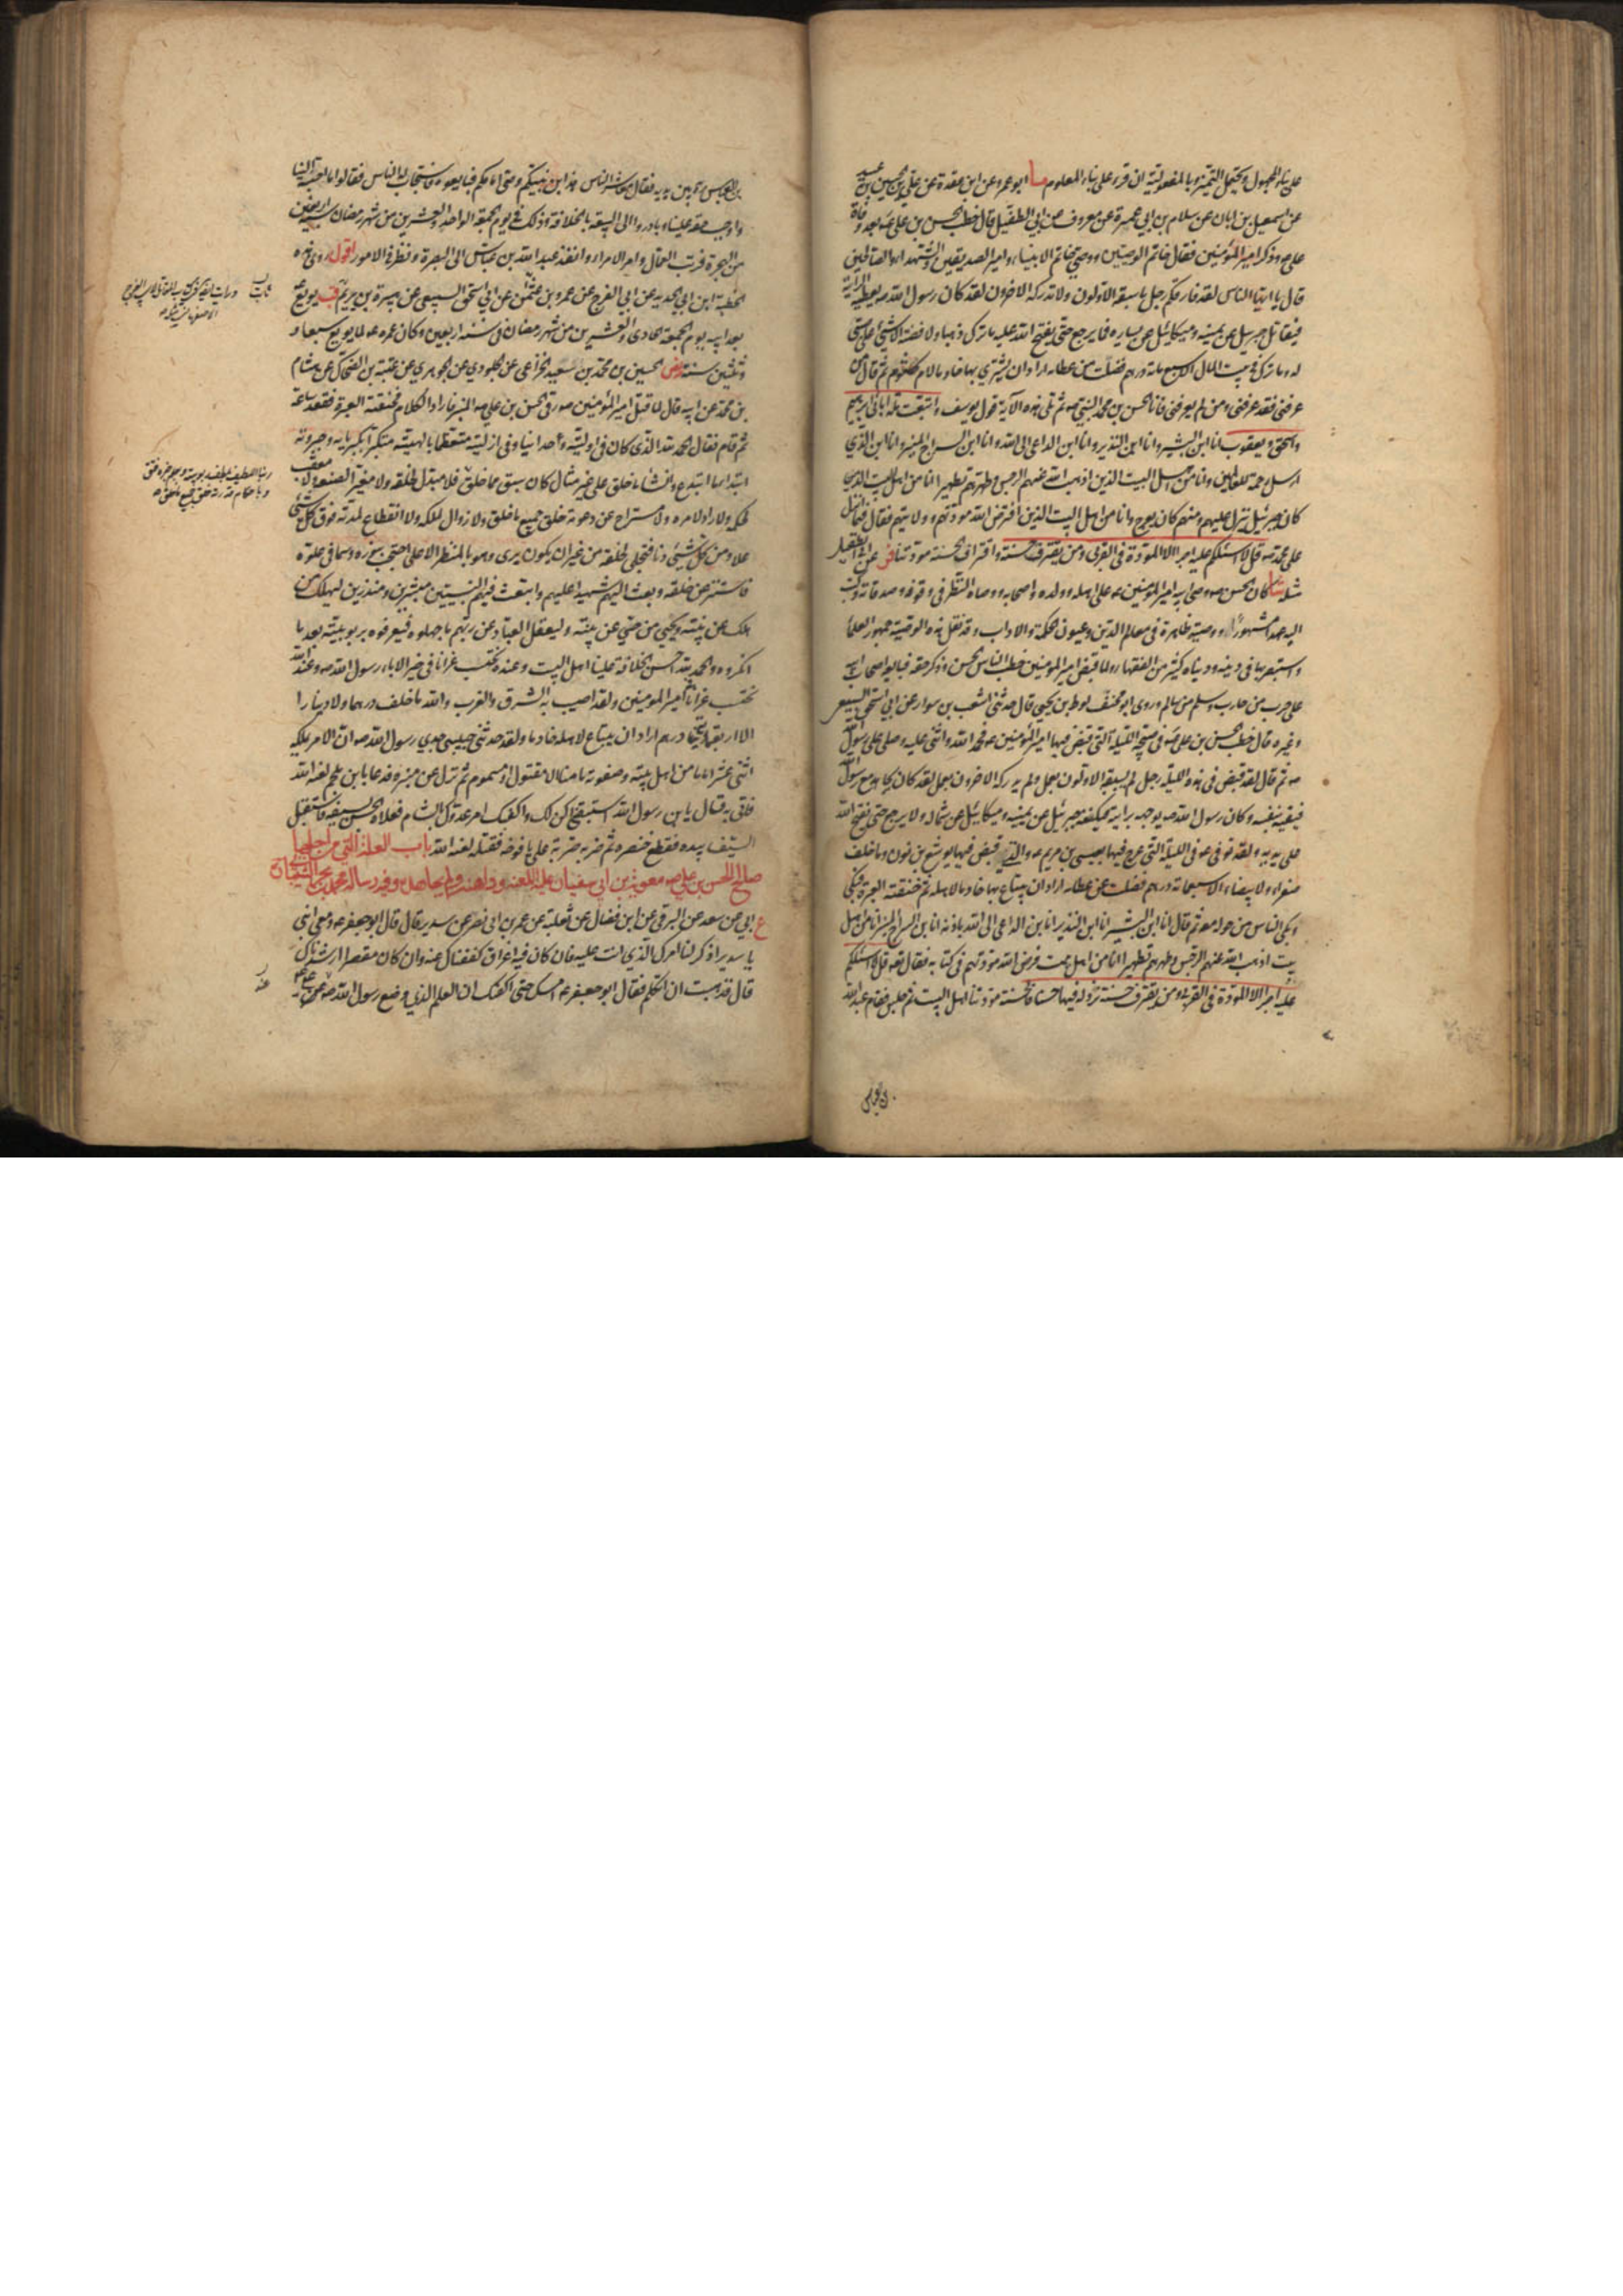 على بناء المجهول ويحتمل التميز بالمفعولية ان قرء على بناء المعلوم ما ابو عمرو عن ابن عقدة عن علي بن الحسين بن عبيد
عن اسمعيل بن ابان عن سلام بن ابي عمرة عن معروف عن ابي الطفيل قال خطب الحسن بن علي بعد وفاة
علي وذكر امير المؤمنين فقال خاتم الوصيين ووصي خاتم الانبياء وامير الصديقين والشهداء والصالحين
قال يا ايها الناس لقد فارقكم رجل ما سبقه الاولون ولا تدركه الاخرون لقد كان رسول الله ص يعطيه الراية
فيقاتل جبرئيل عن يمينه وميكائيل عن يساره فما يرجع حتى يفتح الله عليه ما ترك ذهبا ولا فضة الا شيء على صبي
له وما ترك في بيت المال الا سبعمائة درهم فضلت من عطائه اراد ان يشتري بها خادما لام كلثوم ثم قال من
عرفني فقد عرفني ومن لم يعرفني فانا الحسن بن محمد النبي ص ثم تلى هذه الآية قول يوسف واتبعت ملة ابائي ابرهيم
واسحق ويعقوب انا ابن البشير وانا ابن النذير وانا ابن الداعي الى الله وانا ابن السراج المنير وانا ابن الذي
ارسل رحمة للعالمين وانا من اهل البيت الذين اذهب الله عنهم الرجس وطهرهم تطهيرا انا من اهل البيت الذي
كان جبرئيل ينزل عليهم ومنهم كان يعرج وانا من اهل البيت الذين افترض الله مودتهم وولايتهم فقال فيما انزل
على محمد ص قل لا اسئلكم عليه اجرا الا المودة في القربى ومن يقترف حسنة واقتراف الحسنة مودتنا فر عن ابي الطفيل
مثله شا كان الحسن ص وصي ابيه امير المؤمنين ع على اهله وولده واصحابه ووصاه بالنظر في وقوفه وصدقاته وكتب
اليه عهدا مشهورا ووصية ظاهرة في معالم الدين وعيون الحكمة والاداب وقد نقل هذه الوصية جمهور العلماء
واستبصر بها في دينه ودنياه كثير من الفقهاء ولما قبض امير المؤمنين خطب الناس الحسن وذكر حقه فبايعه اصحاب ابيه
على حرب من حارب وسلم من سالم وروى ابو مخنف لوط بن يحيى قال حدثني اشعث بن سوار عن ابي اسحق السبيعي
وغيره قال خطب الحسن بن علي في صبيحة الليلة التي قبض فيها امير المؤمنين ع فحمد الله واثنى عليه وصلى على رسول الله
ص ثم قال لقد قبض في هذه الليلة رجل لم يسبقه الاولون بعمل ولم يدركه الاخرون بعمل لقد كان يجاهد مع رسول الله
فيقيه بنفسه وكان رسول الله ص يوجهه برايته فيكنفه جبرئيل عن يمينه وميكائيل عن شماله ولا يرجع حتى يفتح الله
على يديه ولقد توفي ع في الليلة التي عرج فيها بعيسى بن مريم ع والتي قبض فيها يوشع بن نون وما خلف
صفراء ولا بيضاء الا سبعمائة درهم فضلت عن عطائه اراد ان يبتاع بها خادما لاهله ثم خنقته العبرة فبكى
وبكى الناس من حوله معه ثم قال انا ابن البشير انا ابن النذير انا ابن الداعي الى الله باذنه انا ابن السراج المنير انا من اهل
بيت اذهب الله عنهم الرجس وطهرهم تطهيرا انا من اهل بيت فرض الله مودتهم في كتابه فقال تعه قل لا اسئلكم
عليه اجرا الا المودة في القربى ومن يقترف حسنة نزد له فيها حسنا فالحسنة مودتنا اهل البيت ثم جلس فقام عبد الله
بن العباس
بن العباس ره بين يديه فقال معاشر الناس هذا ابن نبيكم ووصي امامكم فبايعوه فاستجاب له الناس فقالوا ما احبه الينا
واوجب حقه علينا وبادروا الى البيعة بالخلافة وذلك في يوم الجمعة الواحد والعشرين من شهر رمضان سنة اربعين
من الهجرة فرتب العمال وامر الامراء وانفذ عبد الله بن عباس الى البصرة ونظر في الامور اقول روى هذه
الخطبة ابن ابي الحديد عن ابي الفرج عن عمرو بن عثمن عن ابي اسحق السبيعي عن هبيرة بن يريم قب بويع
بعد ابيه يوم الجمعة الحادي والعشرين من شهر رمضان في سنة اربعين وكان عمره ع لما بويع سبعا و
ثلثين سنة نص الحسين بن محمد بن سعيد الخزاعي عن الجلودي عن الجوهري عن عتبة بن الضحاك عن هشام
بن محمد عن ابيه قال لما قتل امير المؤمنين ص رقى الحسن بن علي ص المنبر فاراد الكلام فخنقته العبرة فقعد ساعة
ثم قام فقال الحمد لله الذي كان في اوليته وحدانيا وفي ازليته متعظما بالهيته متكبرا بكبريائه وجبروته
ابتدا ما ابتدع وانشا ما خلق على غير مثال كان سبق مما خلق فلا مبدل لخلقه ولا مغير لصنعه لا معقب
لحكمه ولا راد لامره ولا مستراح عن دعوته خلق جميع ما خلق ولا زوال لملكه ولا انقطاع لمدته فوق كل شيء
علا ومن كل شيء دنا فتجلى لخلقه من غير ان يكون يرى وهو بالمنظر الاعلى احتجب بنوره وسما في علوه
فاستتر عن خلقه وبعث اليهم شهيدا عليهم وابتعث فيهم النبيين مبشرين ومنذرين ليهلك من
هلك عن بينة ويحيى من حي عن بينة وليعقل العباد عن ربهم ما جهلوه فيعرفوه بربوبيته بعد ما
انكروه والحمد لله الذي احسن الخلافة علينا اهل البيت وعنده نحتسب عزانا في خير الاباء رسول الله ص وعند الله
نحتسب عزانا في امير المؤمنين ولقد اصيب به الشرق والغرب والله ما خلف درهما ولا دينارا
الا اربعمائة درهم اراد ان يبتاع لاهله خادما ولقد حدثني حبيبي جدي رسول الله ص ان الامر يملكه
اثنى عشر اماما من اهل بيته وصفوته ما منا الا مقتول او مسموم ثم نزل عن منبره فدعا بابن ملجم لعنه الله
فاتي به قال يابن رسول الله استبقني اكن لك واكفيك امر عدوك بالشام فعلاه الحسن بسيفه فاستقبل
السيف بيده فقطع خنصره ثم ضربه ضربة على يافوخه فقتله لعنه الله باب العلة التي من اجلها
صالح الحسن بن علي ص معوية بن ابي سفيان عليه اللعنة وداهنه ولم يجاهده وفيه رسالة محمد بن بحر الشيباني
ع ابي عن سعد عن البرقي عن ابن فضال عن ثعلبة عن عمر بن ابي نصر عن سدير قال قال ابو جعفر ع ومعي ابني
يا سدير اذكر لنا امرك الذي انت عليه فان كان فيه اغراق كففناك عنه وان كان مقصرا ارشدناك
قال فذهبت ان اتكلم فقال ابو جعفر ع امسك حتى اكفيك ان العلم الذي وضع رسول الله ص عند علي ع